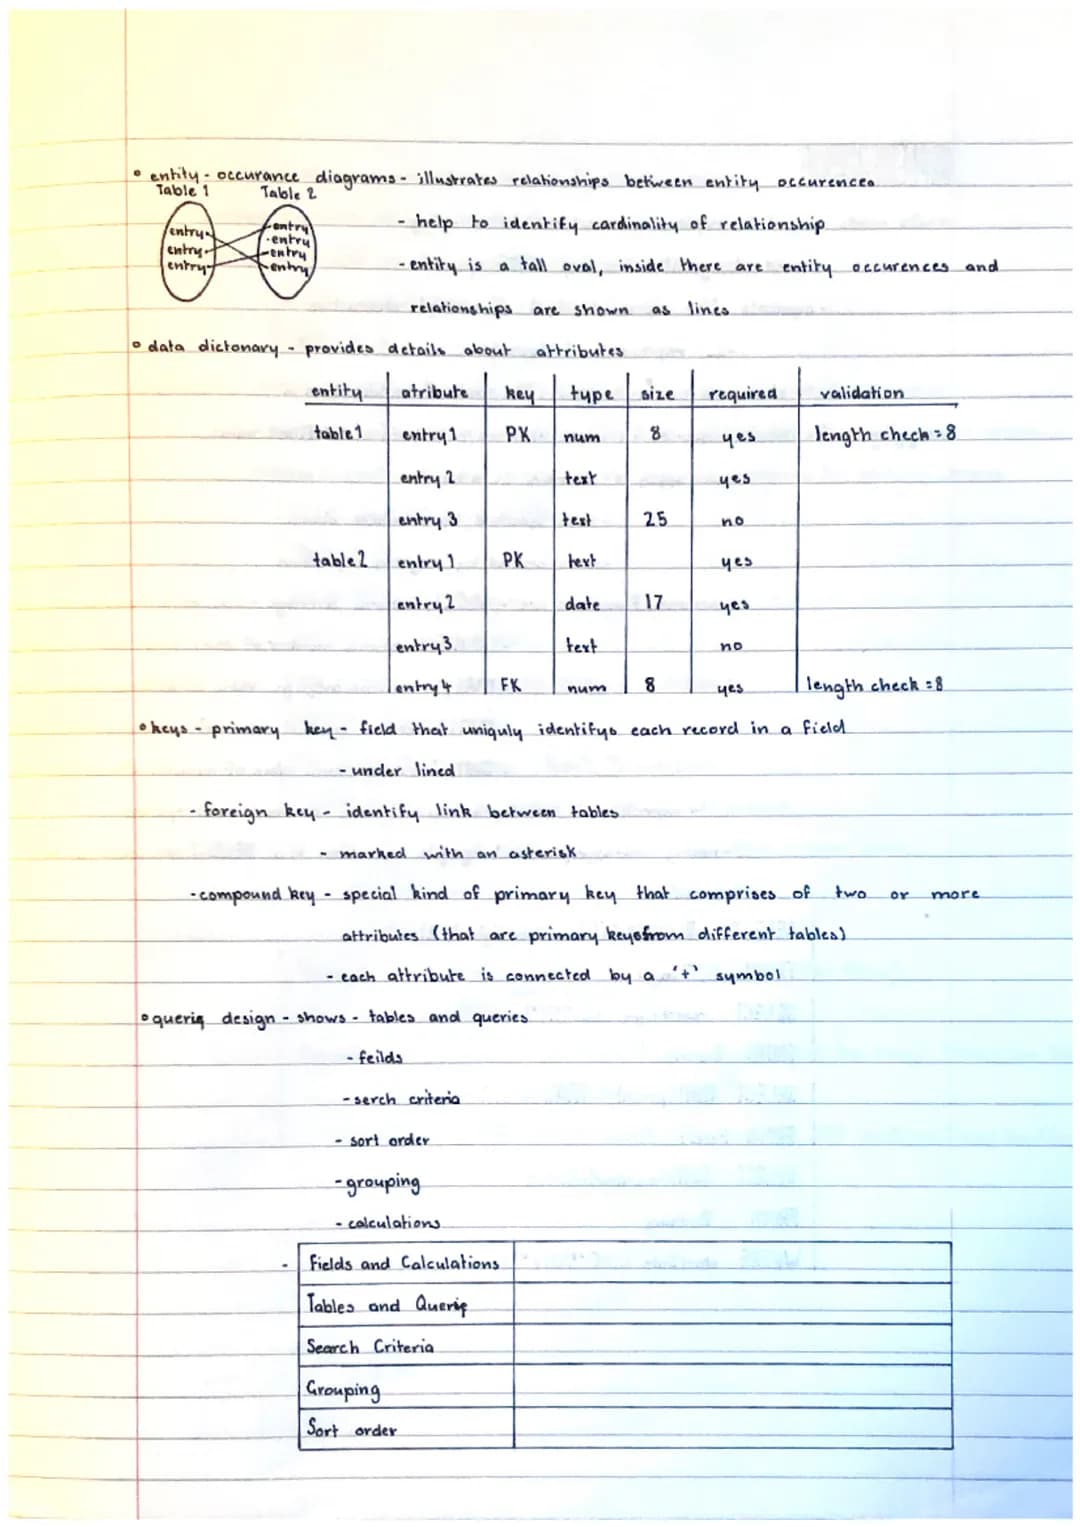 ° entity - occurance diagrams - illustrates relationships between entity occurences
Table 1 Table 2
entry entry
entry -entry
entry -entry
-entry
- help to identify cardinality of relationship
- entity is a tall oval, inside there are entity occurences and
relationships are shown as lines
° data dictonary - provides details about attributes
entity atribute key type size required validation
table 1 entry 1 PK num 8 yes length check = 8
entry 2 text yes
entry 3 text 25 no
table 2 entry 1 PK text yes
entry 2 date 17 yes
entry 3 text no
entry 4 FK num 8 yes length check = 8
° keys - primary key - field that uniquly identifys each record in a field
- under lined
- foreign key - identify link between tables
- marked with an asterisk
- compound key - special kind of primary key that comprises of two or more
attributes (that are primary keys from different tables)
- each attribute is connected by a '+' symbol
° design - shows - tables and queries
- feilds
- serch criteria
- sort order
- grouping
- calculations
- Fields and Calculations
Tables and
Search Criteria
Grouping
Sort order